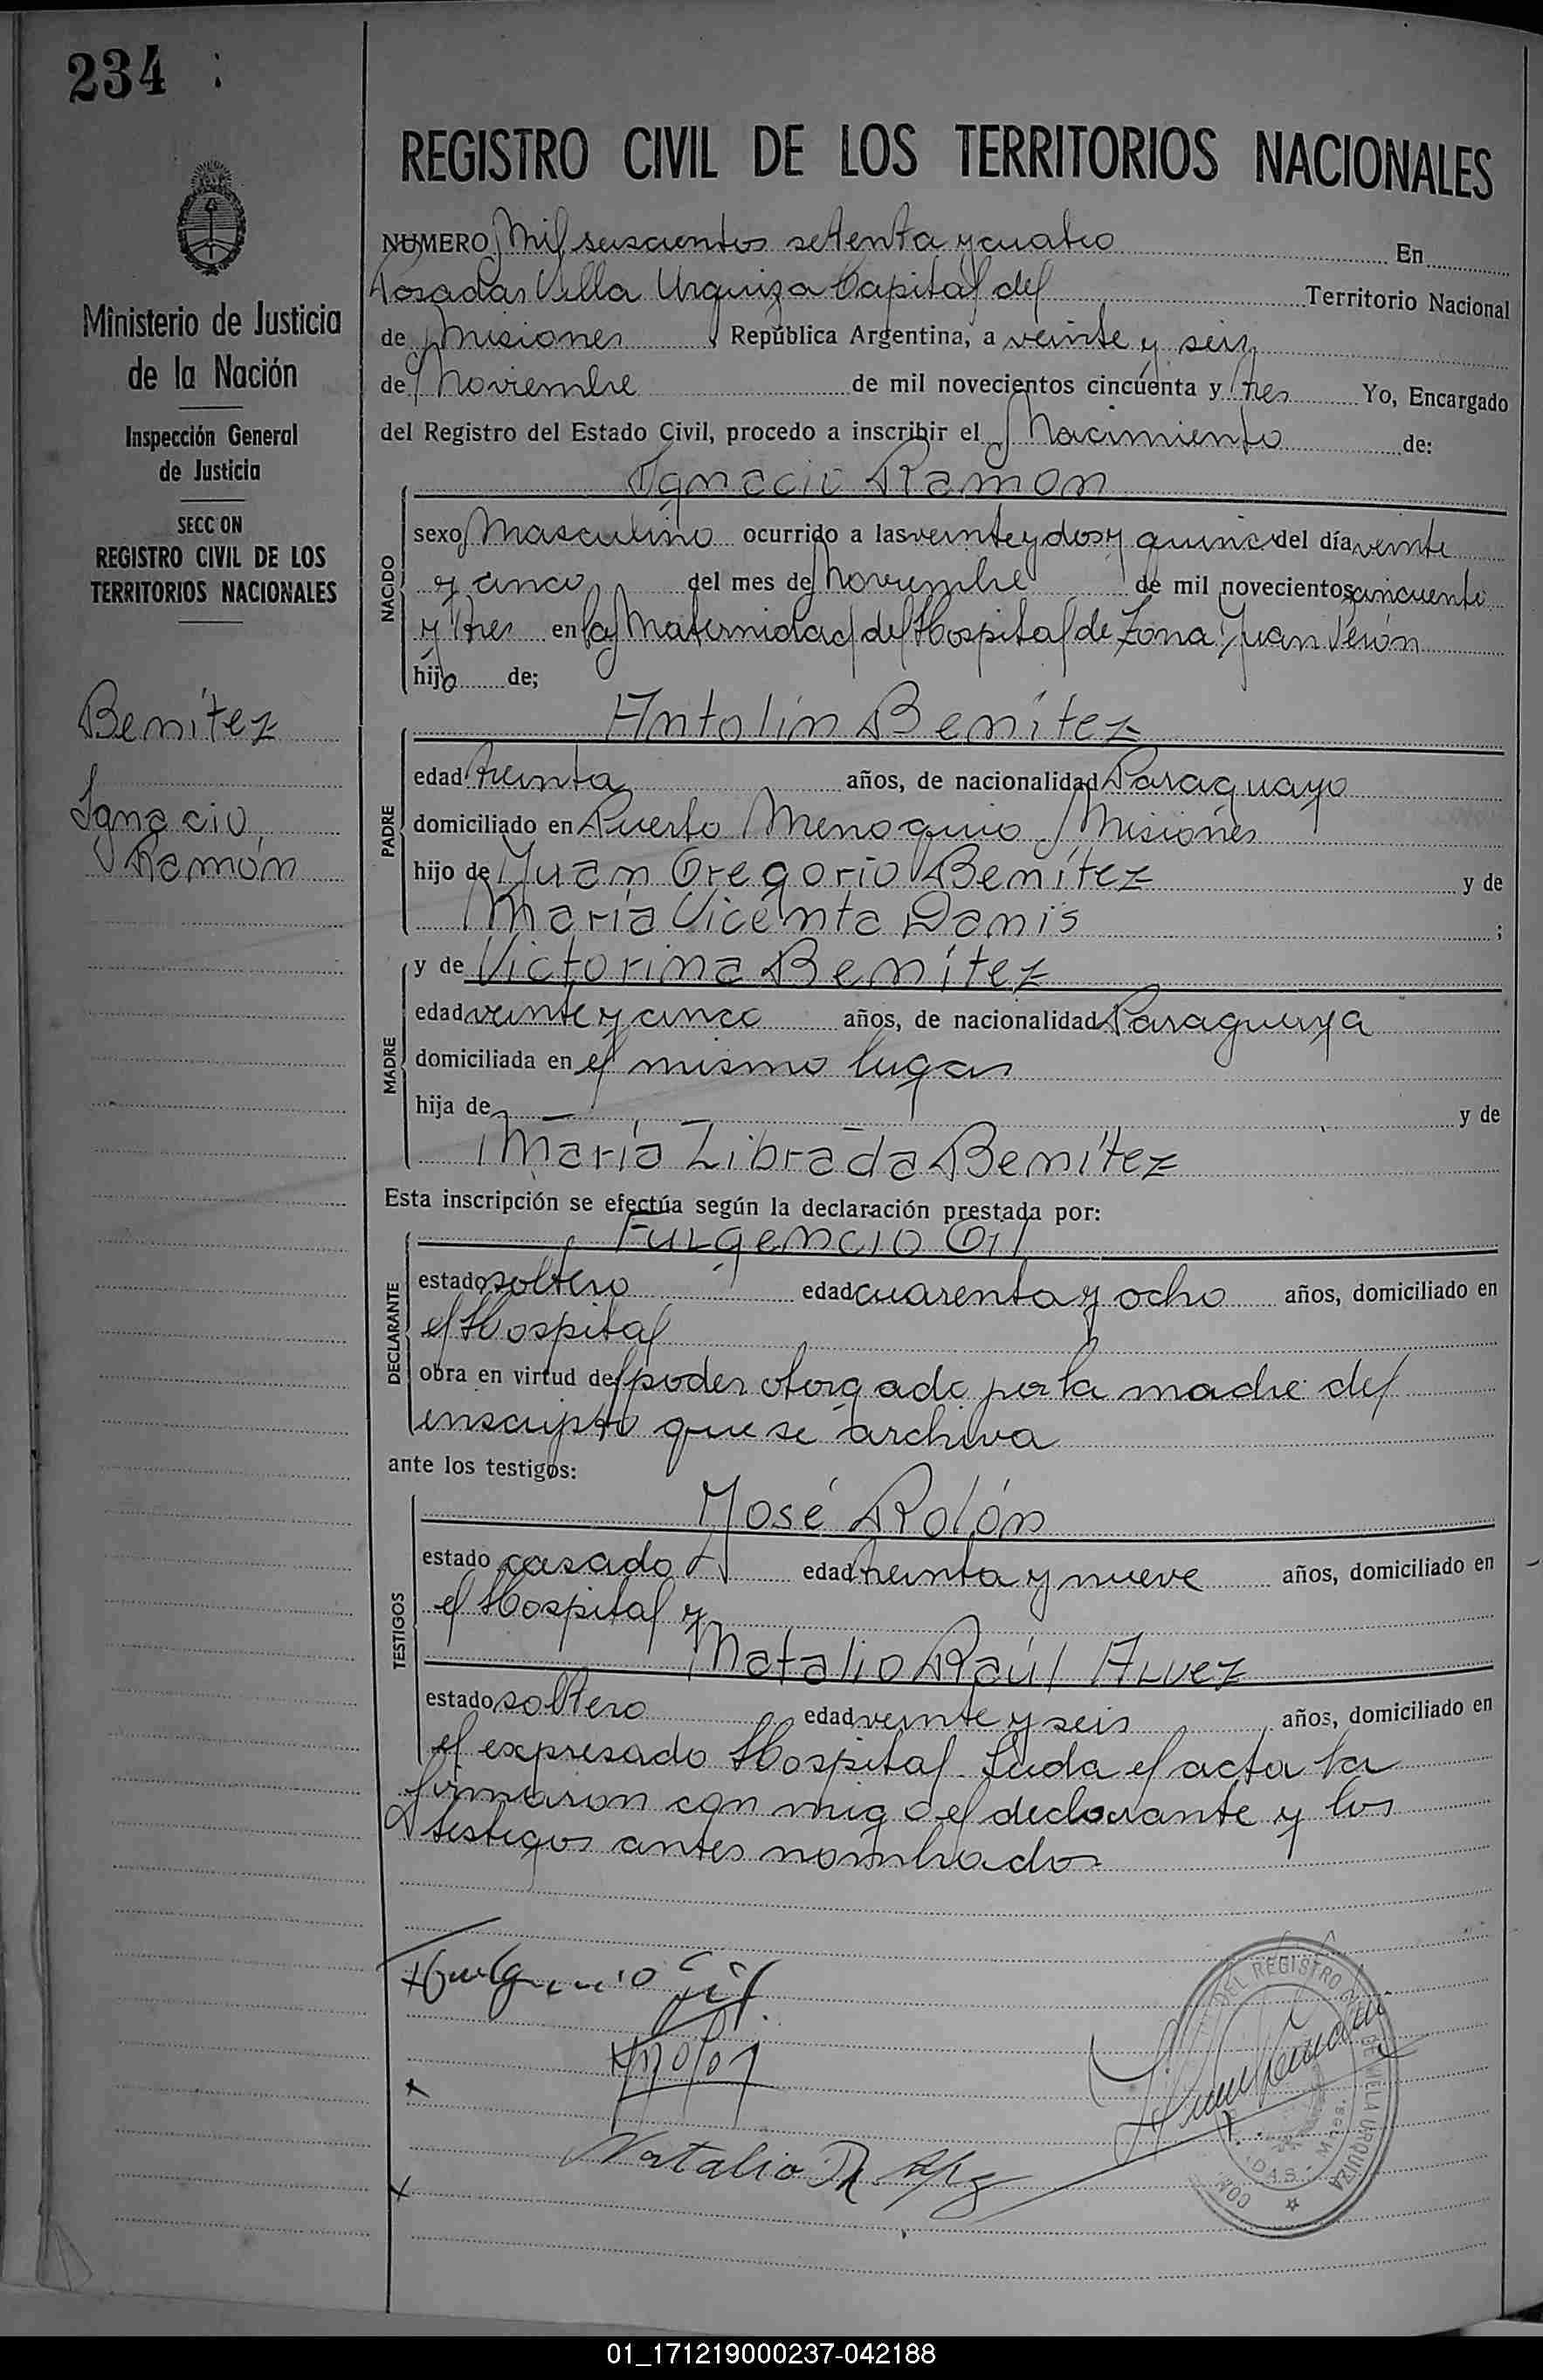 234
REGISTRO CIVIL DE LOS TERRITORIOS NACIONALES
Ministerio de Justicia
de la Nación
Inspección General
de Justicia
SECC ON
REGISTRO CIVIL DE LOS
TERRITORIOS NACIONALES
Benítez
Ignacio
Ramón
NUMERO Mil seiscientos setenta y cuatro En
Posadas Villa Urquiza Capital del Territorio Nacional
de Misiones República Argentina, a veinte y seis
de Noviembre de mil novecientos cincuenta y tres Yo, Encargado
del Registro del Estado Civil, procedo a inscribir el Nacimiento de:
Ignacio Ramon
NACIDO
sexo Masculino ocurrido a las veinte y dos y quince del día veinte
y cinco del mes de Noviembre de mil novecientos cincuenta
y tres en la Maternidad del Hospital de Zona Juan Perón
hijo de;
PADRE
Antolín Benítez
edad treinta años, de nacionalidad Paraguayo
domiciliado en Puerto Menoquio Misiones
hijo de Juan Gregorio Benítez y de
María Vicenta Danis ;
MADRE
y de Victorina Benítez
edad veinte y cinco años, de nacionalidad Paraguaya
domiciliada en el mismo lugar
hija de — — y de
María Librada Benítez
Esta inscripción se efectúa según la declaración prestada por:
DECLARANTE
Fulgencio Gil
estado soltero edad cuarenta y ocho años, domiciliado en
el Hospital
obra en virtud del poder otorgado por la madre del
inscripto que se archiva
ante los testigos:
TESTIGOS
José Rolón
estado casado edad treinta y nueve años, domiciliado en
el Hospital y
Natalio Raúl Alvez
estado soltero edad veinte y seis años, domiciliado en
el expresado Hospital. Leida el acta la
firmaron con migo el declarante y los
testigos antes nombrados
Fulgencio Gil
Rolon
Natalio R
DEL REGISTRO
DE VILLA URQUIZA
01_171219000237-042188